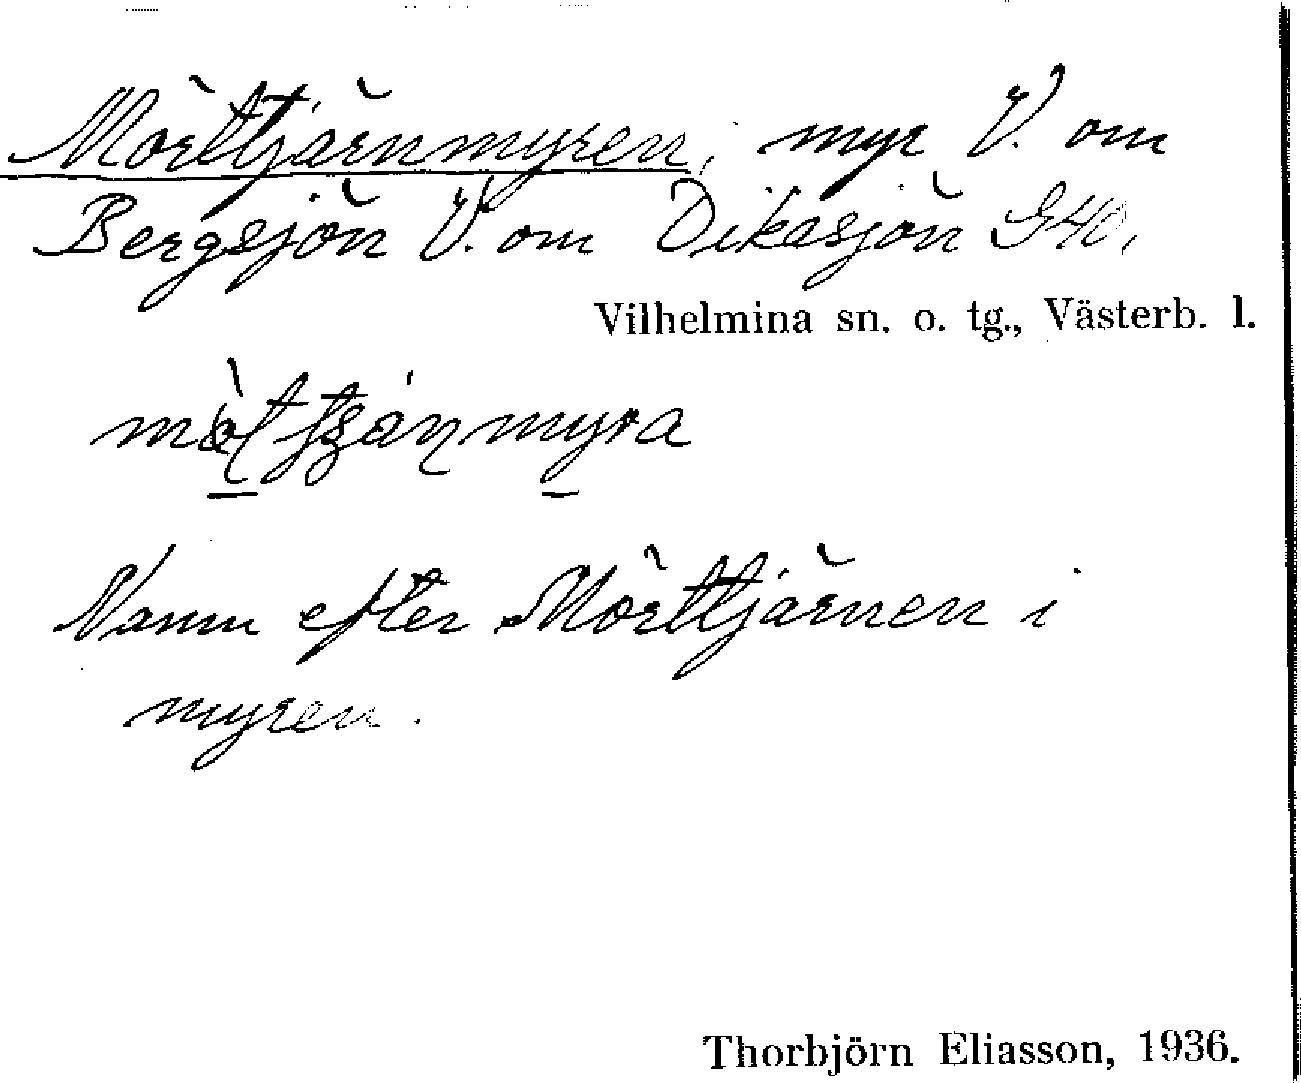 Mörttjärnmyren, myr V. om
Bergsjön V. om Dikasjön G40.
Vilhelmina sn. o. tg., Västerb. l.
Namn efter Mörttjärnen i
myren.
Thorbjörn Eliasson, 1936.